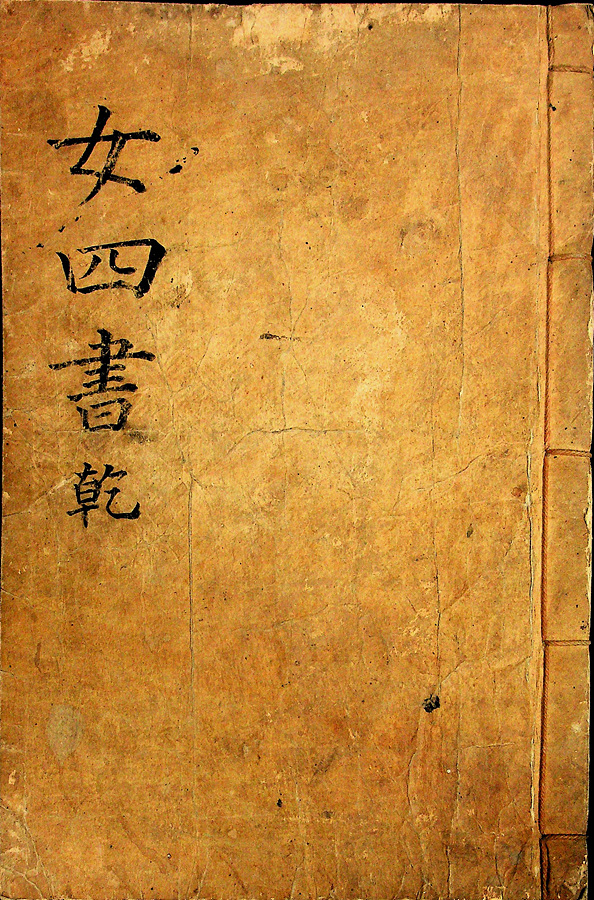 女四書乾